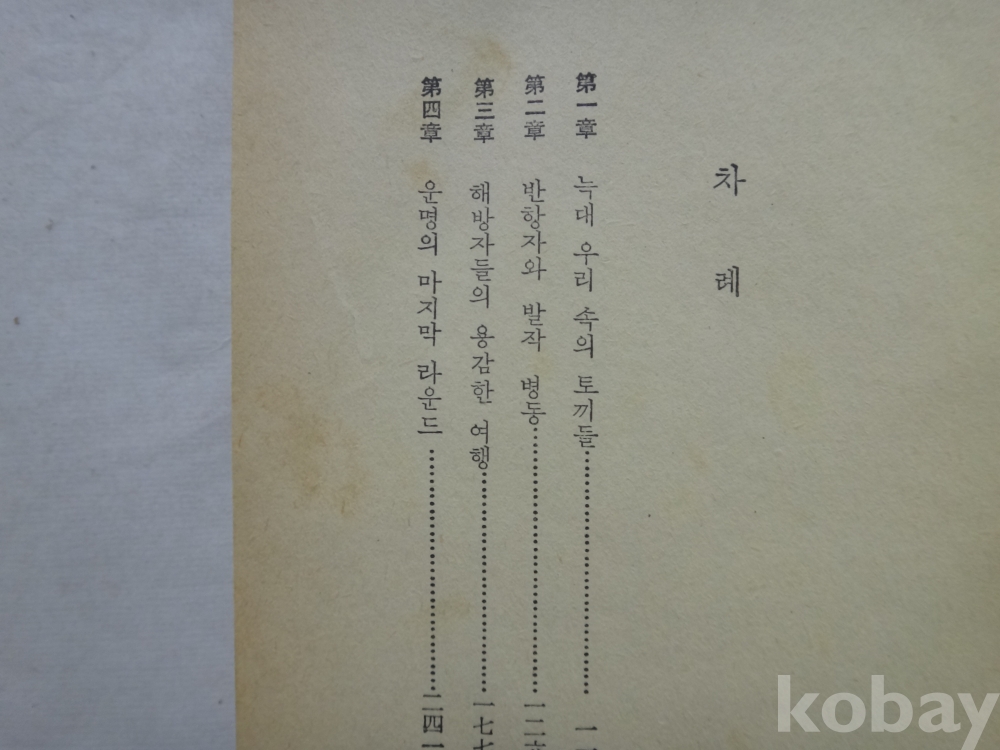 차례
第一章 늑대 우리 속의 토끼들……………………… 一
第二章 반항자와 발작 병동……………………… 一二
第三章 해방자들의 용감한 여행……………………… 一七七
第四章 운명의 마지막 라운드……………………… 二四一
kobay